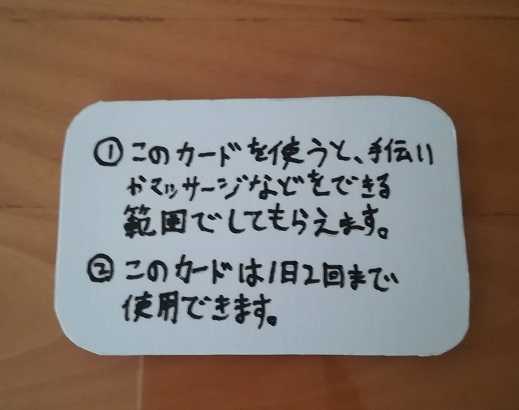 ①このカードを使うと、手伝い
かマッサージなどをできる
範囲でしてもらえます。
②このカードは1日2回まで
使用できます。